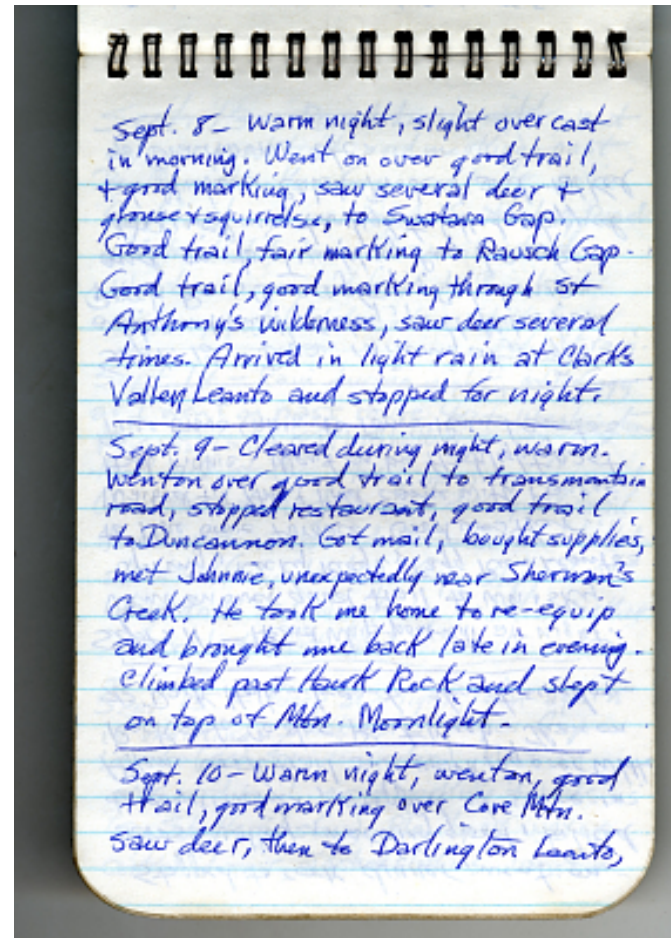 Sept. 8 - Warm night, slight overcast
in morning. Went on over good trail,
+ good marking, saw several deer +
grouse + squirrels, to Swatara Gap.
Good trail, fair marking to Rausch Gap.
Good trail, good marking through St
Anthony's wilderness, saw deer several
times. Arrived in light rain at Clark's
Valley Leanto and stopped for night.
Sept. 9 - Cleared during night, warm.
Went on over good trail to transmontain
road, stopped restaurant, good trail
to Duncannon. Got mail, bought supplies,
met Johnnie, unexpectedly near Sherman's
Creek. He took me home to re-equip
and brought me back late in evening.
Climbed past Hawk Rock and slept
on top of Mtn. Moonlight.
Sept. 10 - Warm night, went on, good
trail, good marking over Cove Mtn.
saw deer, then to Darlington Leanto,